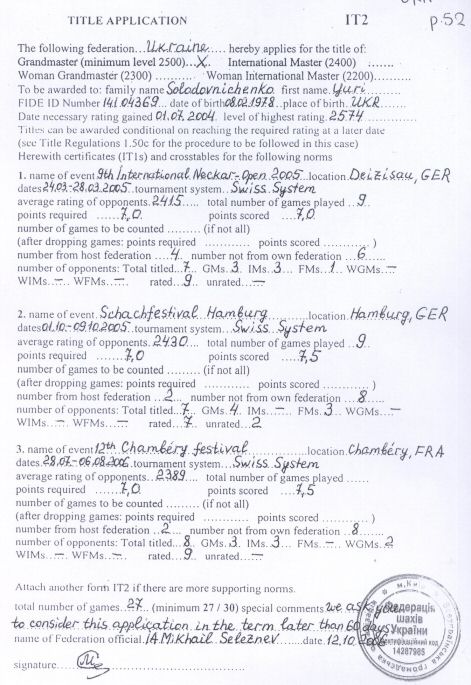 p.52
TITLE APPLICATION IT2
The following federation...Ukraine..... hereby applies for the title of:
Grandmaster (minimum level 2500)...X. International Master (2400) .......
Woman Grandmaster (2300) ....... Woman International Master (2200).......
To be awarded to: family name Solodovnichenko first name Yuri
FIDE ID Number 14104369.. date of birth 08.02.1978.. place of birth.. UKR
Date necessary rating gained 01.07.2004. level of highest rating. 2574
Titles can be awarded conditional on reaching the required rating at a later date
(see Title Regulations 1.50c for the procedure to be followed in this case)
Herewith certificates (IT1s) and crosstables for the following norms
1. name of event 9th International Neckar-Open 2005..location. Deizisau, GER
dates 24.03.-28.03.2005..tournament system...Swiss System
average rating of opponents. 2415.. total number of games played ..9.
points required ....7,0. points scored ....7,0
number of games to be counted ......... (if not all)
(after dropping games: points required ............. points scored ............. )
number from host federation ....4.. number not from own federation ...6...
number of opponents: Total titled...7 GMs. 3 IMs..3 FMs...1 WGMs.—
WIMs..—. WFMs...—. rated...9 unrated...—
2. name of event.. Schachfestival Hamburg......location. Hamburg, GER
dates 01.10.-09.10.2005..tournament system...Swiss System
average rating of opponents. 2430 .. total number of games played ..9.
points required ......7,0 points scored ....7,5
number of games to be counted ......... (if not all)
(after dropping games: points required ............. points scored ............. )
number from host federation ...2... number not from own federation ...8
number of opponents: Total titled...7 GMs..4 IMs...— FMs. 3 WGMs..—
WIMs..— WFMs...— rated...7 unrated...2
3. name of event 12th Chambéry festival...............location. Chambéry, FRA
dates. 28.07.-06.08.2006..tournament system...Swiss System
average rating of opponents. ..2389.. total number of games played ......
points required ......7,0. points scored ....7,5
number of games to be counted ......... (if not all)
(after dropping games: points required ............. points scored ............. )
number from host federation ..2... number not from own federation ...8
number of opponents: Total titled...8 GMs. 3 IMs. 3 FMs..— WGMs..2
WIMs..—. WFMs...—. rated...9 unrated...—
Attach another form IT2 if there are more supporting norms.
total number of games. 27... (minimum 27 / 30) special comments we ask you
to consider this application in the term later than 60 days
name of Federation official. IA Mikhail Seleznev...date. 12.10.2006
signature
Федерація
шахів
України
14287985